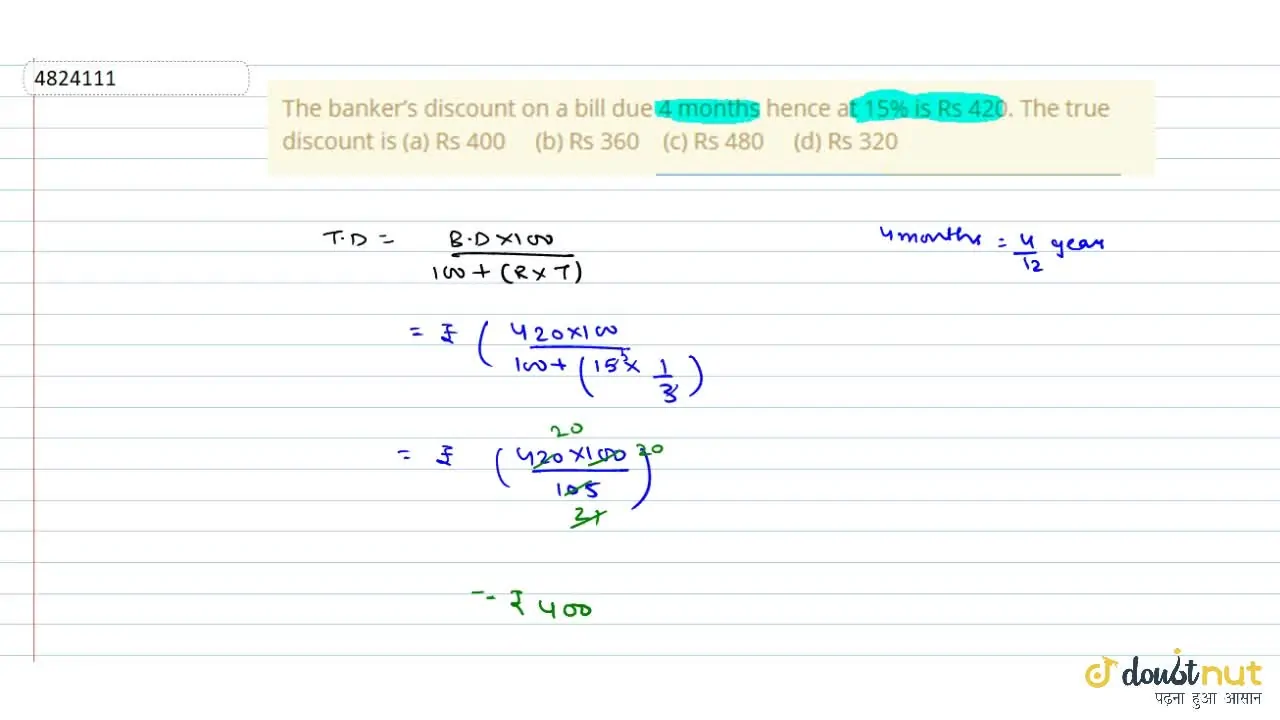 4824111
The banker's discount on a bill due 4 months hence at 15% is Rs 420. The true
discount is (a) Rs 400 (b) Rs 360 (c) Rs 480 (d) Rs 320
T.D = B.D×100
100+(R×T)
4 months = 4/12 year
= ₹ ( 420×100
100+ (15 5 × 1/3)
20
= ₹ (420×100) 20
105
21
= ₹ 400
doubtnut
पढ़ना हुआ आसान